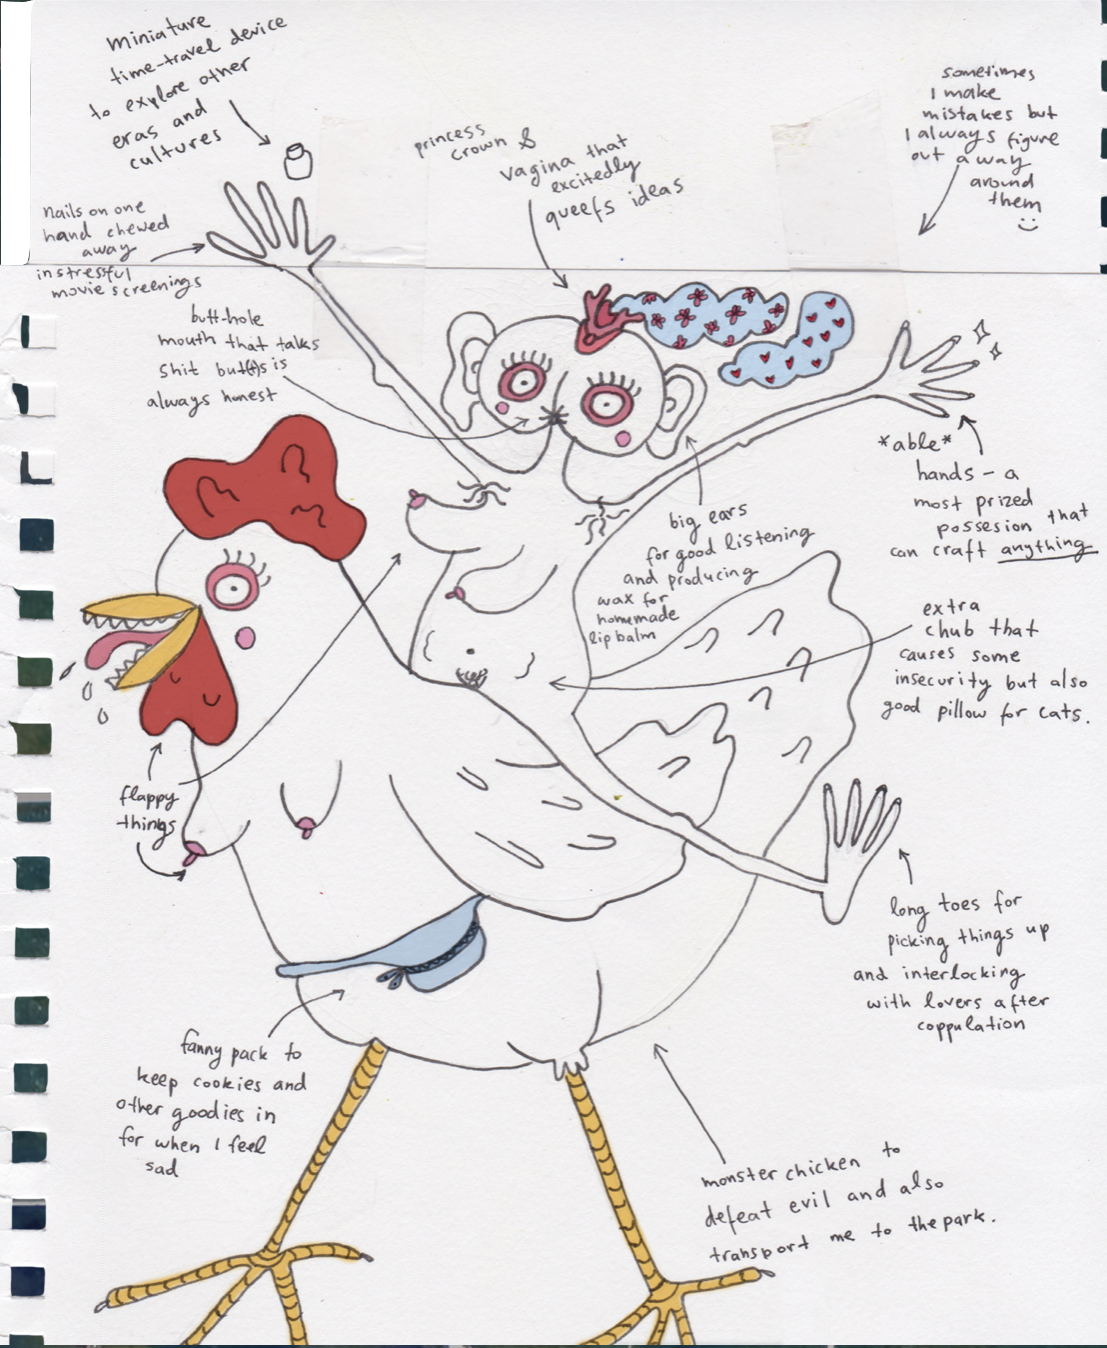 miniature
time-travel device
to explore other
eras and
cultures
princess
crown &
vagina that
excitedly
queefs ideas
sometimes
I make
mistakes but
I always figure
out a way
around
them
nails on one
hand chewed
away
in stressful
movie screenings
butt-hole
mouth that talks
shit but(t)s is
always honest
*able*
hands - a
most prized
possesion that
can craft anything
big ears
for good listening
and producing
wax for
homemade
lip balm
extra
chub that
causes some
insecurity but also
good pillow for cats.
flappy
things
long toes for
picking things up
and interlocking
with lovers after
coppulation
fanny pack to
keep cookies and
other goodies in
for when I feel
sad
monster chicken to
defeat evil and also
transport me to the park.